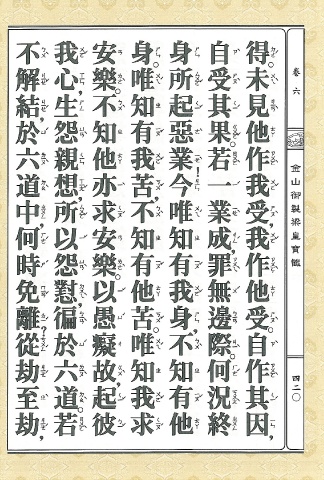 卷六
金山御製梁皇寶懺
四二〇
得。未見他作我受,我作他受。自作其因,
自受其果。若一業成罪無邊際。何況終
身所起惡業!今唯知有我身,不知有他
身。唯知有我苦,不知有他苦。唯知我求
安樂。不知他亦求安樂。以愚癡故,起彼
我心,生怨親想,所以怨懟徧於六道。若
不解結,於六道中,何時免離?從劫至劫,